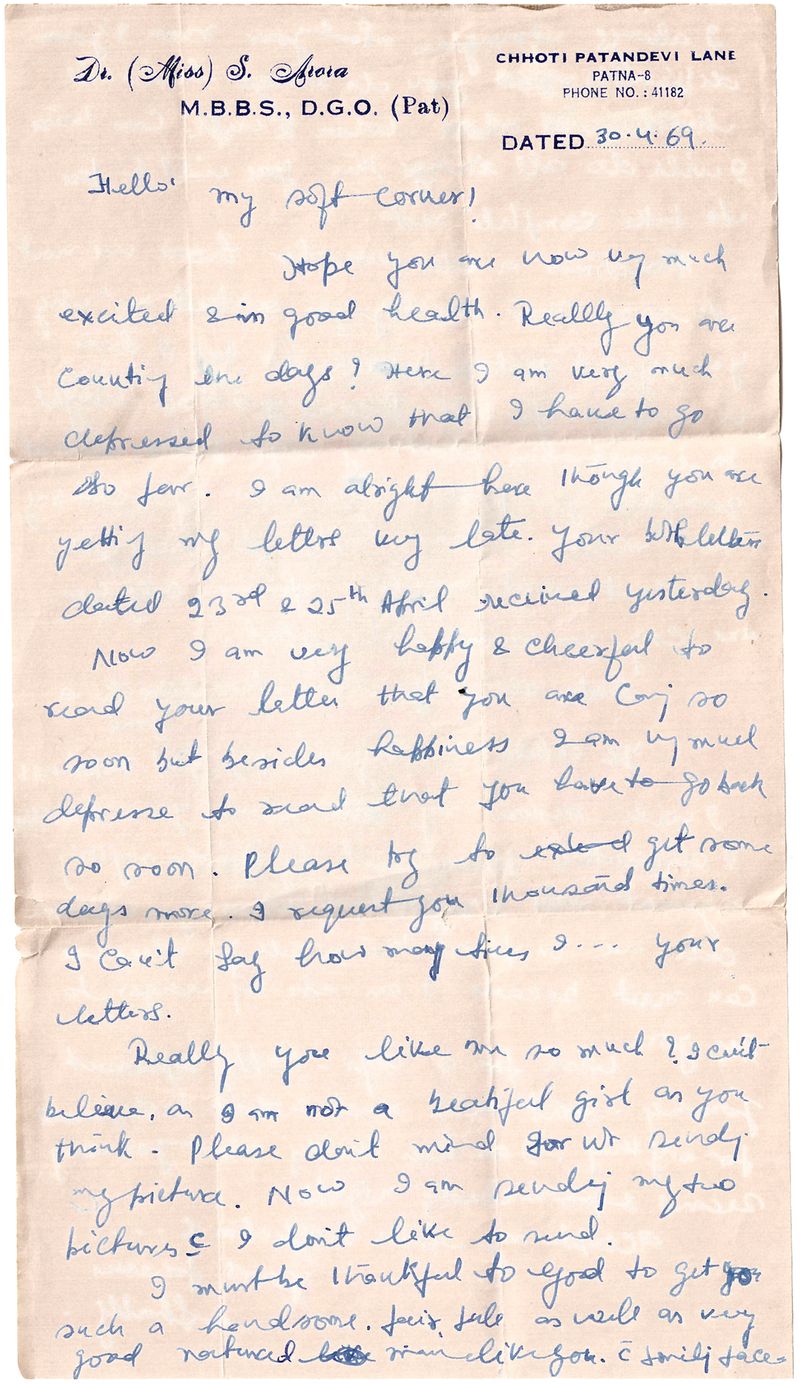 Dr. (Miss) S. Arora
M.B.B.S., D.G.O. (Pat)
CHHOTI PATANDEVI LANE
PATNA-8
PHONE NO. : 41182
DATED 30.4.69.
Hello' my soft corner!
Hope you are now very much
excited & in good health. Really you are
counting the days? Here I am very much
depressed to know that I have to go
so far. I am alright here though you are
getting my letters very late. Your both letters
dated 23rd & 25th April received yesterday.
Now I am very happy & cheerful to
read your letter that you are coming so
soon but besides happiness I am very much
depresse to read that you have to go back
so soon. Please try to get some
days more. I request you thousand times.
I can't say how many times I... your
letters.
Really you like me so much? I can't
believe, as I am not a beatiful girl as you
think. Please don't mind for nt sending
my picture. Now I am sending my two
pictures c̄ I don't like to send.
I must be thankful to good to get
such a handsome. fair as well as very
good natured man like you. c̄ smilj face-